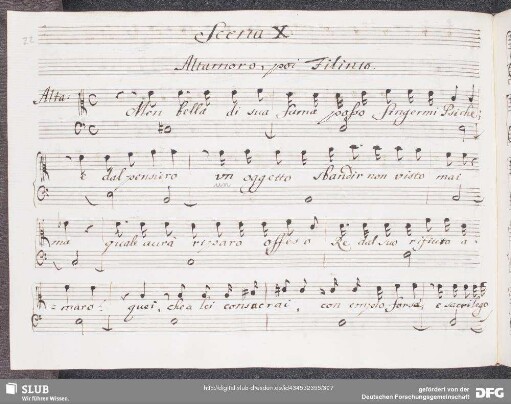 22
Scena X
Altamoro, poi Filinto.
Alta:
Men bella di sua fama posso fingermi Psiche;
e dal pensiero un oggetto sbandir non visto mai
ma quale avrà riparo offeso Re dal suo rifiuto a-
=maro? quei, che a lei consacrai, con empio forsa, e sacrilego
SLUB
Wir führen Wissen.
gefördert von der
Deutschen Forschungsgemeinschaft
DFG